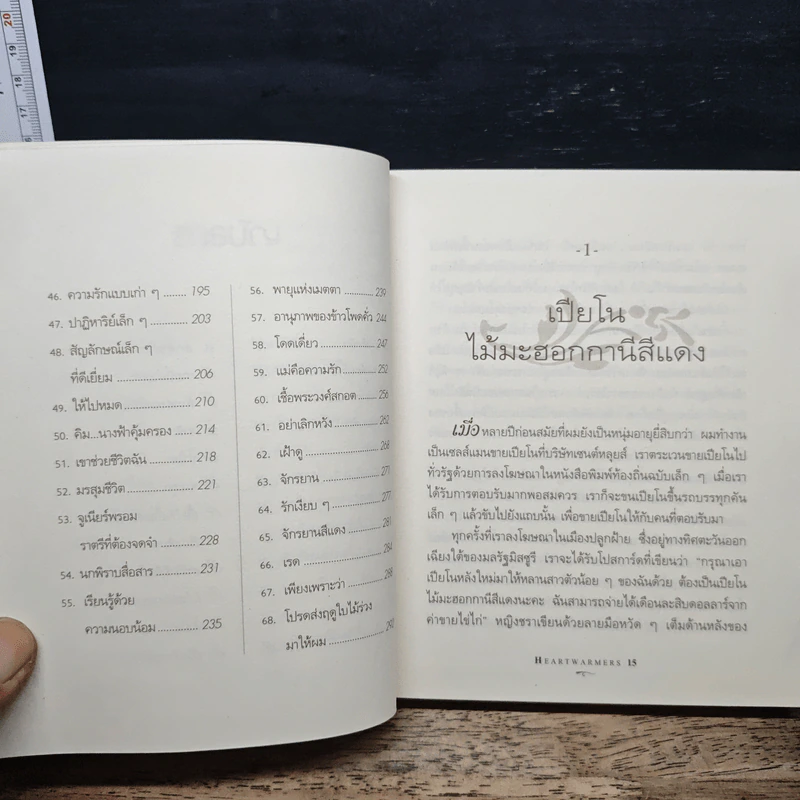 20
19
18
17
46. ความรักแบบเก่า ๆ ........ 195
47. ปาฏิหาริย์เล็ก ๆ ............ 203
48. สัญลักษณ์เล็ก ๆ
ที่ดีเยี่ยม ...................... 206
49. ให้ไปหมด .................. 210
50. คิม...นางฟ้าคุ้มครอง .... 214
51. เขาช่วยชีวิตฉัน ............ 218
52. มรสุมชีวิต .................. 221
53. จูเนียร์พรอม
ราตรีที่ต้องจดจำ .......... 228
54. นกพิราบสื่อสาร .......... 231
55. เรียนรู้ด้วย
ความนอบน้อม ............ 235
56. พายุแห่งเมตตา ............ 239
57. อานุภาพของข้าวโพดคั่ว 244
58. โดดเดี่ยว .................... 247
59. แม่คือความรัก ............ 252
60. เชื้อพระวงศ์สกอต ........ 256
61. อย่าเลิกหวัง ................ 262
62. เฝ้าดู .......................... 268
63. จักรยาน ...................... 271
64. รักเงียบ ๆ .................. 277
65. จักรยานสีแดง .............. 281
66. เรด ............................ 284
67. เพียงเพราะว่า .............. 288
68. โปรดส่งฤดูใบไม้ร่วง
มาให้ผม ...................... 292
-1-
เปียโน
ไม้มะฮอกกานีสีแดง
เมื่อหลายปีก่อนสมัยที่ผมยังเป็นหนุ่มอายุยี่สิบกว่า ผมทำงาน
เป็นเซลส์แมนขายเปียโนที่บริษัทเซนต์หลุยส์ เราตระเวนขายเปียโนไป
ทั่วรัฐด้วยการลงโฆษณาในหนังสือพิมพ์ท้องถิ่นฉบับเล็ก ๆ เมื่อเรา
ได้รับการตอบรับมากพอสมควร เราก็จะขนเปียโนขึ้นรถบรรทุกคัน
เล็ก ๆ แล้วขับไปยังแถบนั้น เพื่อขายเปียโนให้กับคนที่ตอบรับมา
ทุกครั้งที่เราลงโฆษณาในเมืองปลูกฝ้าย ซึ่งอยู่ทางทิศตะวันออก
เฉียงใต้ของมลรัฐมิสซูรี เราจะได้รับโปสการ์ดที่เขียนว่า “กรุณาเอา
เปียโนหลังใหม่มาให้หลานสาวตัวน้อย ๆ ของฉันด้วย ต้องเป็นเปียโน
ไม้มะฮอกกานีสีแดงนะคะ ฉันสามารถจ่ายได้เดือนละสิบดอลลาร์จาก
ค่าขายไข่ไก่” หญิงชราเขียนด้วยลายมือหวัด ๆ เต็มด้านหลังของ
HEARTWARMERS 15